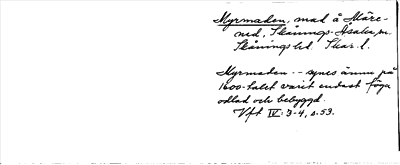 Myrmaden, mad å Märe-
ned, Skånings-Åsaka sn,
Skånings hd. Skar. l.
Myrmaden -- synes ännu på
1600-talet varit endast föga
odlad och bebyggd.
Vft IV: 3-4, s. 53.